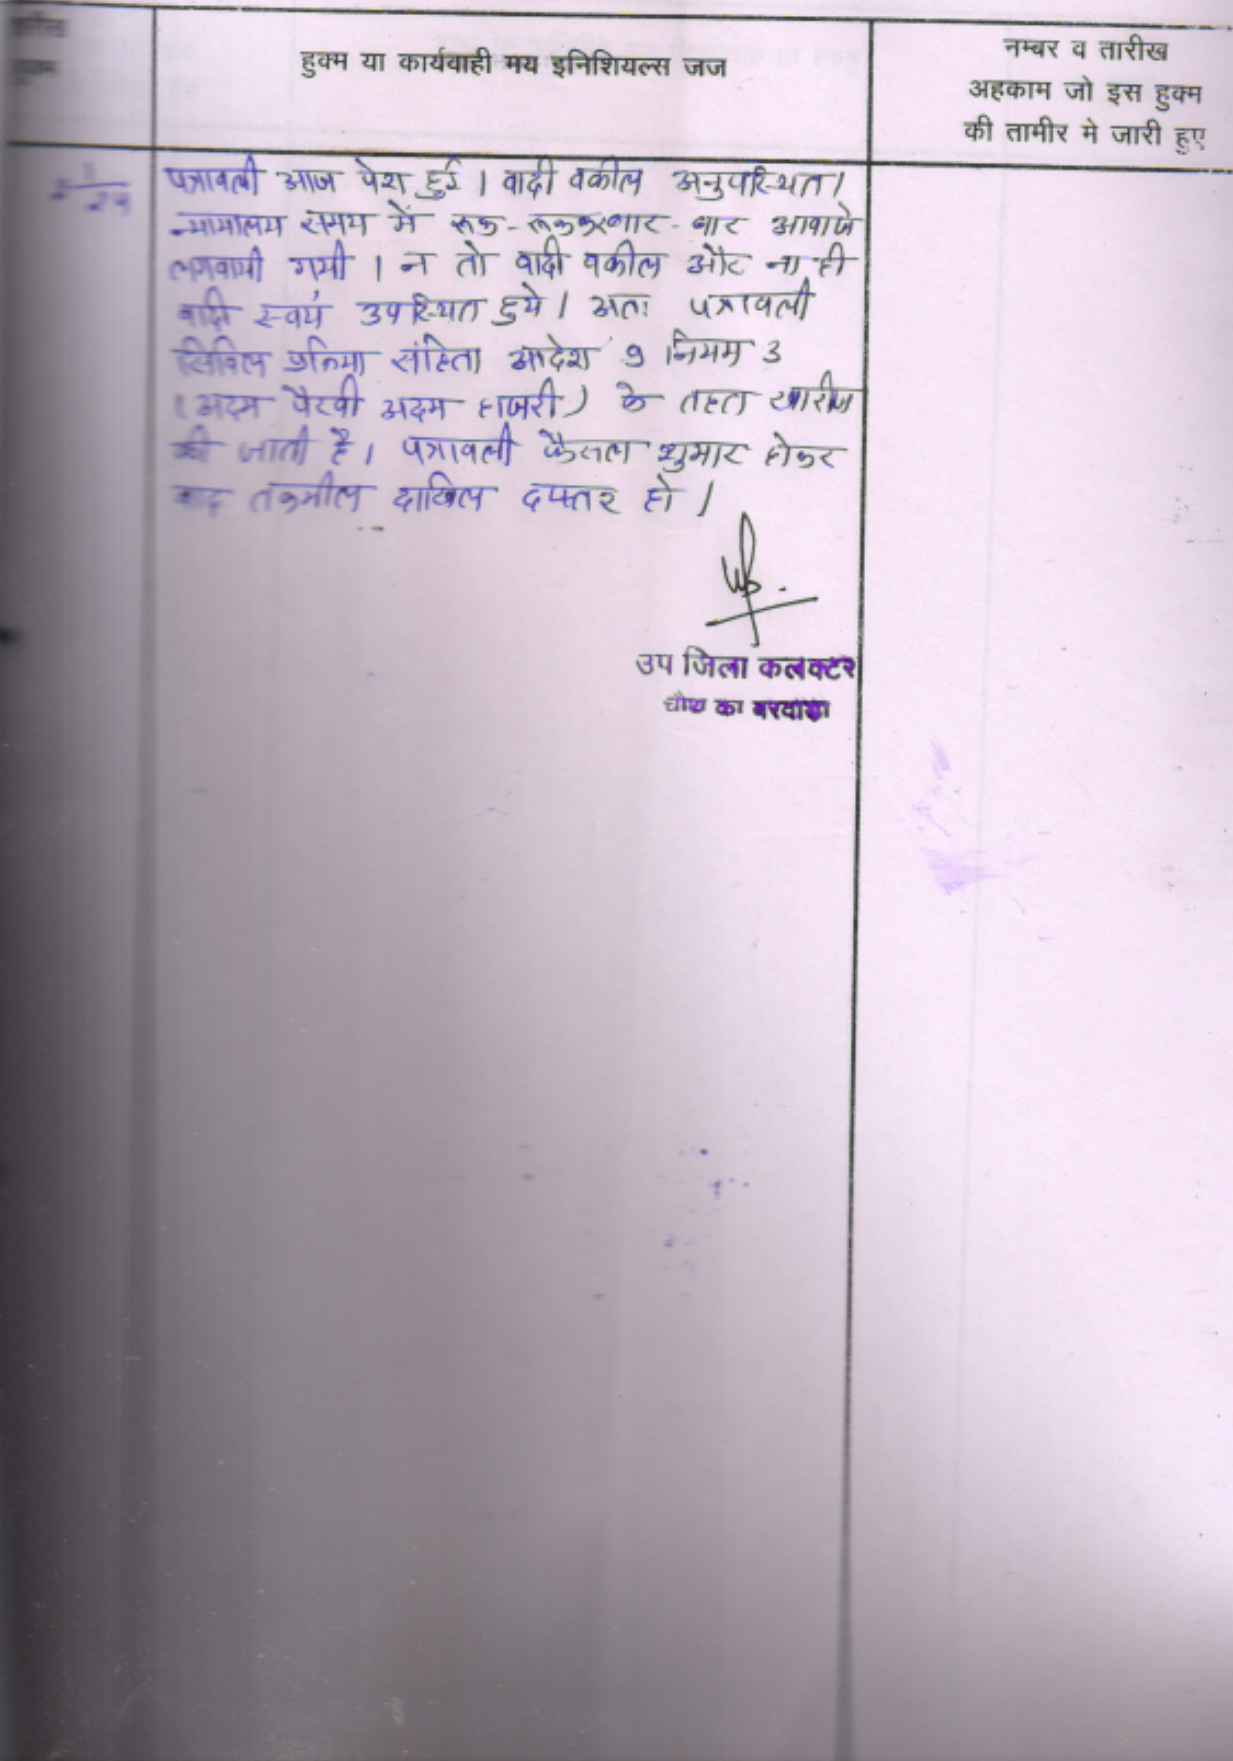 तारीख
हुक्म
हुक्म या कार्यवाही मय इनिशियल्स जज
नम्बर व तारीख
अहकाम जो इस हुक्म
की तामीर मे जारी हुए
पत्रावली आज पेश हुई । वादी वकील अनुपस्थित।
न्यायालय समय में रूक-रूककर बार-बार आवाजे
लगवायी गयी । न तो वादी वकील और ना ही
वादी स्वयं उपस्थित हुये । अतः पत्रावली
सिविल प्रक्रिया संहिता आदेश 9 नियम 3
(अदम पैरवी अदम हाजरी) के तहत खारीज
की जाती है। पत्रावली फैसल शुमार होकर
बाद तकमील दाखिल दफ्तर हो ।
उप जिला कलक्टर
चौथ का बरवाडा